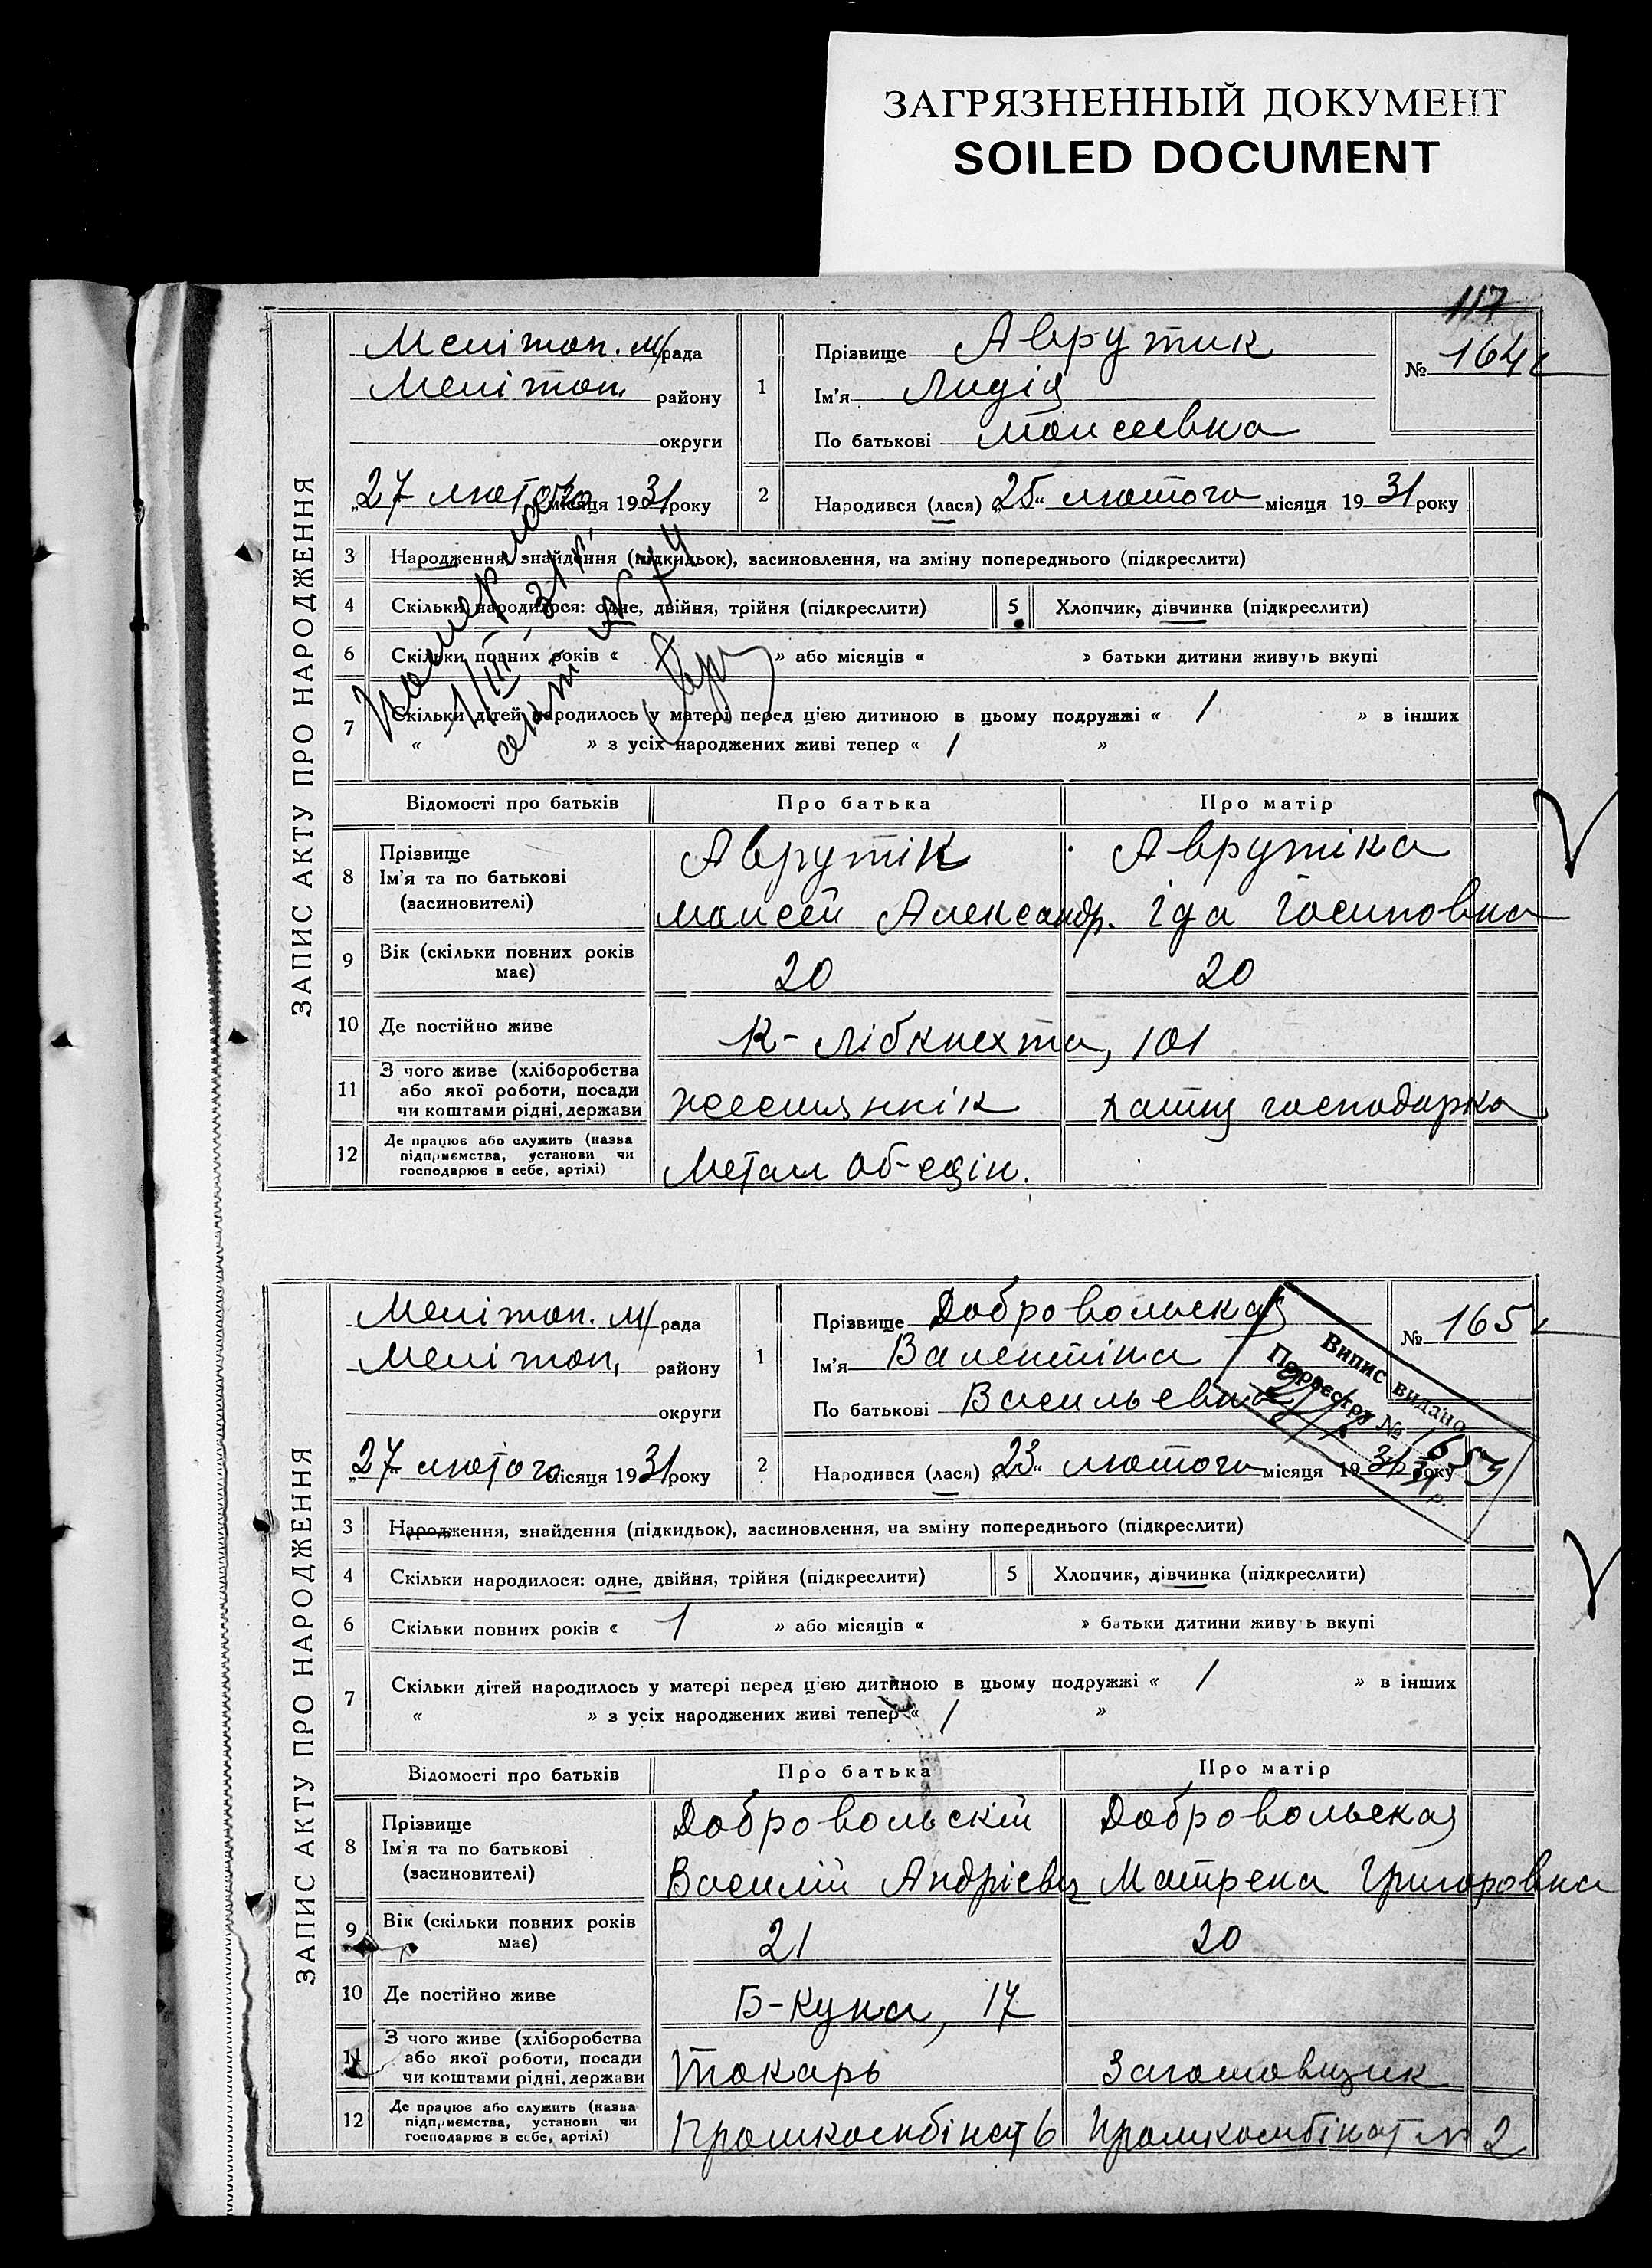 ЗАГРЯЗНЕННЫЙ ДОКУМЕНТ
SOILED DOCUMENT
117
ЗАПИС АКТУ ПРО НАРОДЖЕННЯ
Мелітоп. м/рада
Мелітоп. району
округи
„27 лютого місяця 1931 року
1 Прізвище Аврутик
Ім'я Лидія
По батькові Моисеевна
№ 164
2 Народився (лася) „25" лютого місяця 1931 року
3 Народження, знайдення (підкидьок), засиновлення, на зміну попереднього (підкреслити)
4 Скільки народилося: одне, двійня, трійня (підкреслити) 5 Хлопчик, дівчинка (підкреслити)
6 Скільки повних років « » або місяців « » батьки дитини живуть вкупі
7 Скільки дітей народилось у матері перед цією дитиною в цьому подружжі « 1 » в інших
« » з усіх народжених живі тепер « 1 »
Померла
1/III-31 р.
акт № 74
Відомості про батьків Про батька Про матір
8 Прізвище
Ім'я та по батькові
(засиновителі)
Аврутік Аврутіка
Моисей Александр. Іда Іосиповна
9 Вік (скільки повних років
має)
20 20
10 Де постійно живе К-Лібкнехта, 101
11 З чого живе (хліборобства
або якої роботи, посади
чи коштами рідні, держави
жестяннік хатня господарка
12 Де працює або служить (назва
підприємства, установи чи
господарює в себе, артілі)
Метал об-едін.
ЗАПИС АКТУ ПРО НАРОДЖЕННЯ
Мелітоп. м/рада
Мелітоп. району
округи
„27 лютого місяця 1931 року
1 Прізвище Добровольская
Ім'я Валентіна
По батькові Васильевна
№ 165
Випис видано
По реєстру № 1653
31 р.
2 Народився (лася) „23" лютого місяця 1931 року
3 Народження, знайдення (підкидьок), засиновлення, на зміну попереднього (підкреслити)
4 Скільки народилося: одне, двійня, трійня (підкреслити) 5 Хлопчик, дівчинка (підкреслити)
6 Скільки повних років « 1 » або місяців « » батьки дитини живуть вкупі
7 Скільки дітей народилось у матері перед цією дитиною в цьому подружжі « 1 » в інших
« » з усіх народжених живі тепер « 1 »
Відомості про батьків Про батька Про матір
8 Прізвище
Ім'я та по батькові
(засиновителі)
Добровольскій Добровольская
Василій Андрієвич Матрена Григоровна
9 Вік (скільки повних років
має)
21 20
10 Де постійно живе Б-Куна, 17
11 З чого живе (хліборобства
або якої роботи, посади
чи коштами рідні, держави
Токарь Заготовщик
12 Де працює або служить (назва
підприємства, установи чи
господарює в себе, артілі)
Промкомбінат 6 Промкомбінат № 2